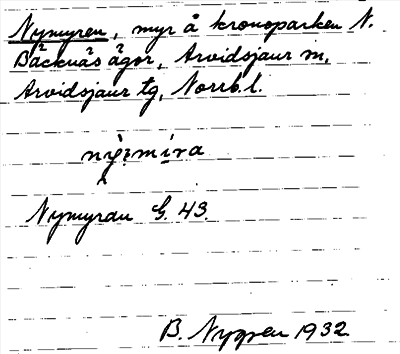 Nymyren, myr å kronoparken N.
Bäcknäs ägor, Arvidsjaur sn,
Arvidsjaur tg, Norrb. l.
Nymyran G. 43.
B. Nygren 1932